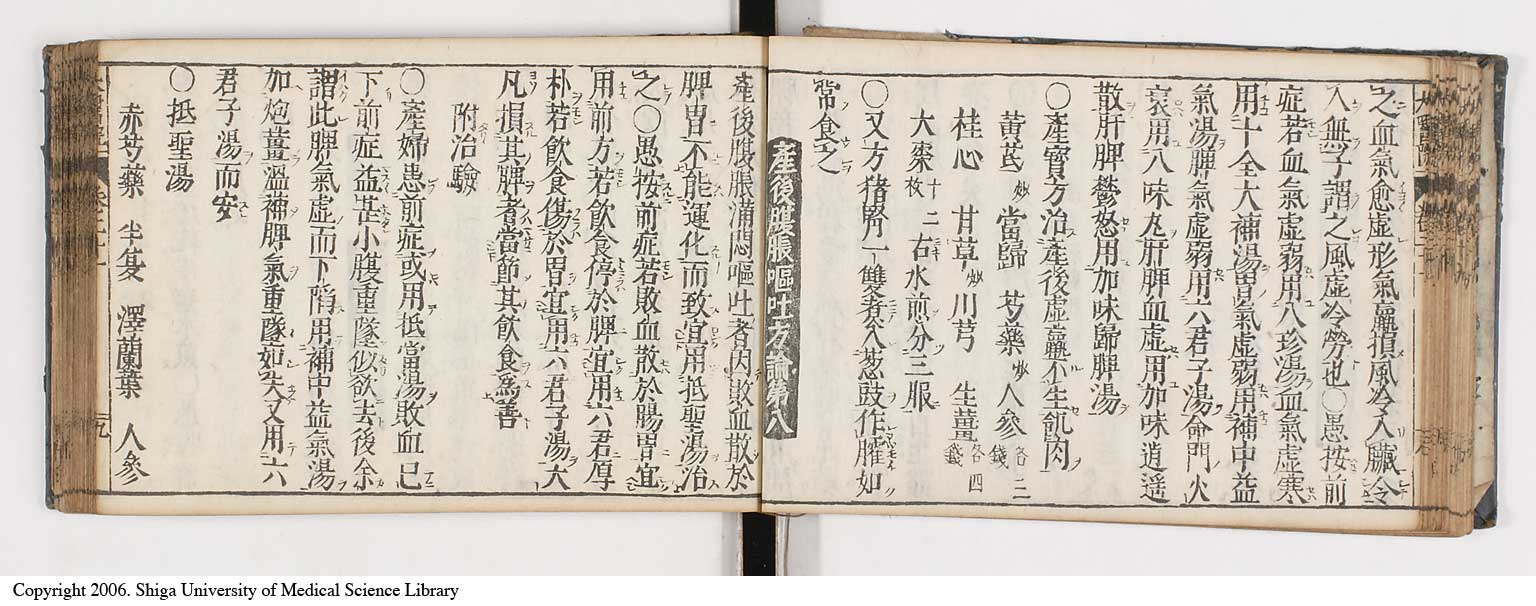 之血氣愈虛形氣羸損風冷入臟令
人無子謂之風虛冷勞也〇愚按前
症若血氣虛弱用八珍湯血氣虛寒
用十全大補湯胃氣虛弱用補中益
氣湯脾氣虛弱用六君子湯命門火
衰用八味丸肝脾血虛用加味逍遥
散肝脾鬱怒用加味歸脾湯
〇產寶方治產後虛羸不生飢肉
黄芪炒 當歸 芍藥炒 人參各二錢
桂心 甘草炒 川芎 生薑各四錢
大棗十二枚 右水煎分三服
〇又方猪腎一雙煮入葱豉作臛如
常食之
產後腹脹嘔吐方論第八
產後腹脹滿悶嘔吐者因敗血散於
脾胃不能運化而致宜用抵聖湯治
之〇愚按前症若敗血散於腸胃宜
用前方若飲食停於脾宜用六君厚
朴若飲食傷於胃宜用六君子湯大
凡損其脾者當節其飲食爲善
附治驗
〇產婦患前症或用抵當湯敗血已
下前症益甚小腹重墜似欲去後余
謂此脾氣虛而下䧟用補中益氣湯
加炮薑溫補脾氣重墜如失又用六
君子湯而安
〇抵聖湯
赤芍藥 半夏 澤蘭葉 人參
Copyright 2006. Shiga University of Medical Science Library